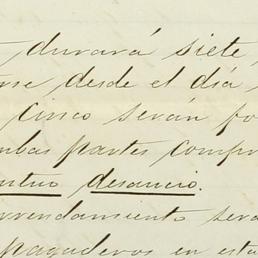 durará siete
rse desde el día
cinco serán fo
mbas partes compr
utuo desaucio.
rrendamiento será
pagaderos en esta